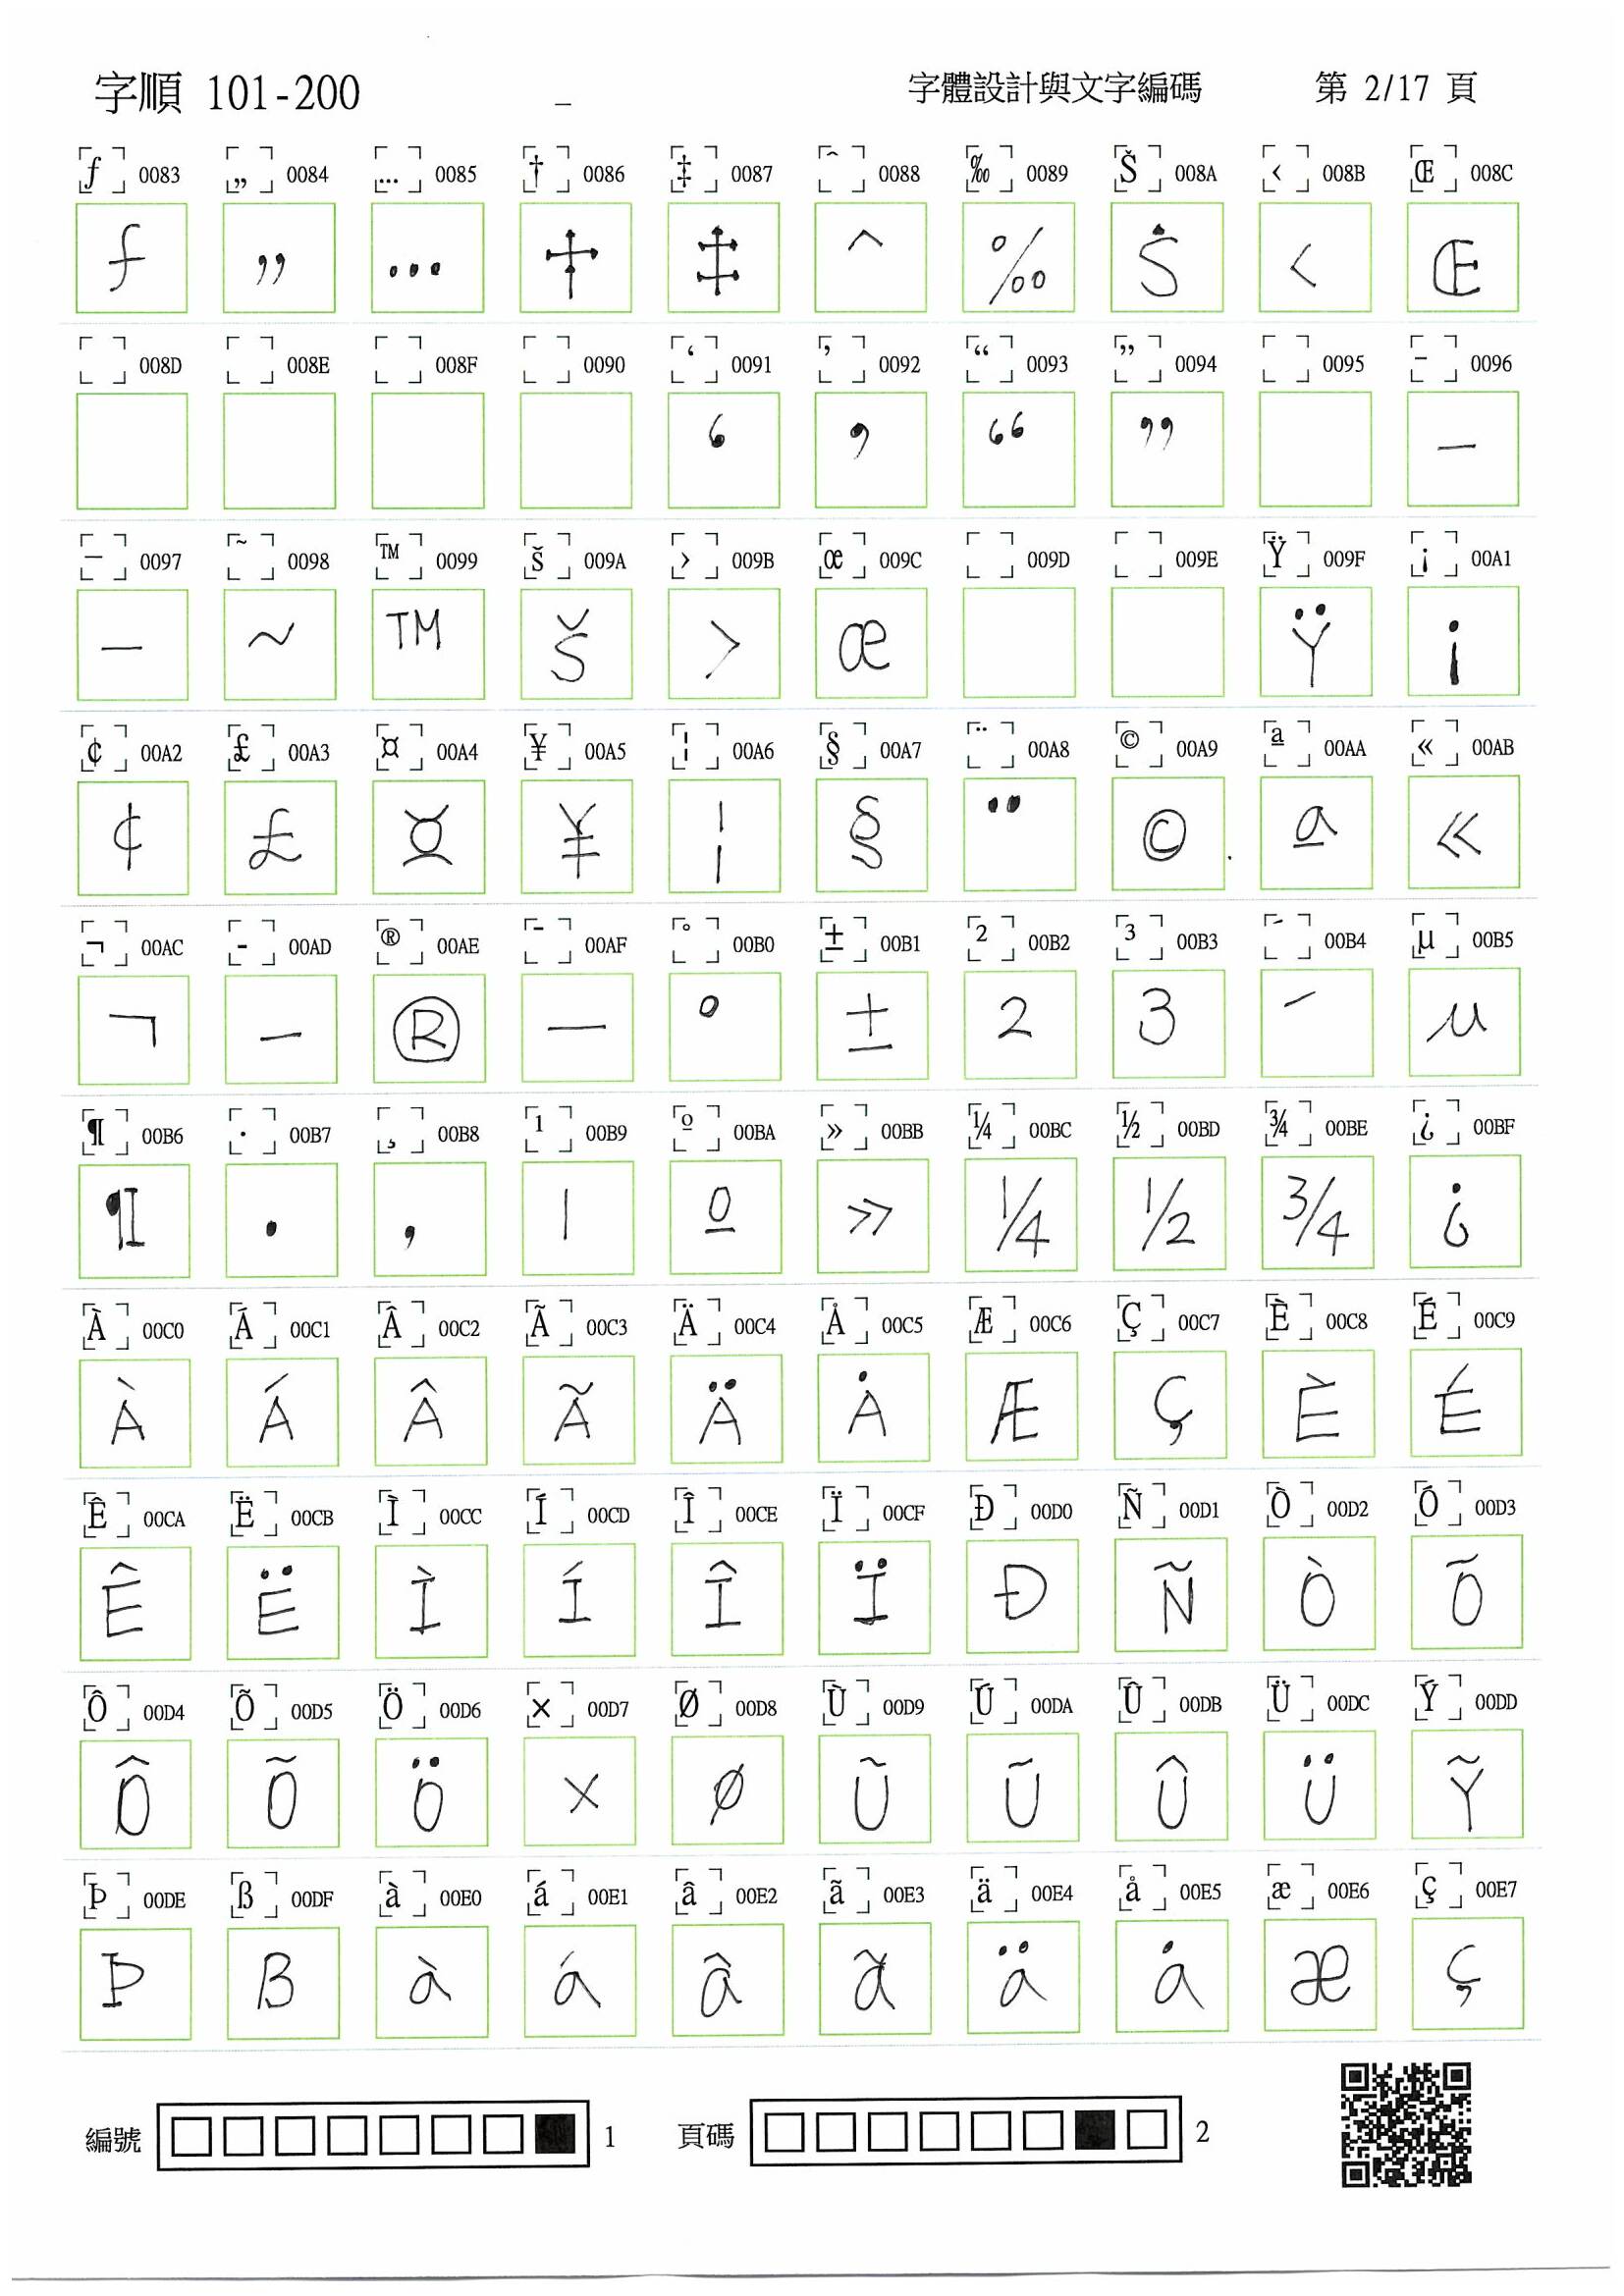 字順 101-200 _ 字體設計與文字編碼 第 2/17 頁
ƒ 0083 „ 0084 … 0085 † 0086 ‡ 0087 ˆ 0088 ‰ 0089 Š 008A ‹ 008B Œ 008C
ƒ „ … † ‡ ˆ ‰ Ṡ ‹ Œ
008D 008E 008F 0090 ‘ 0091 ’ 0092 “ 0093 ” 0094 0095 – 0096
‘ ’ “ ” –
— 0097 ˜ 0098 ™ 0099 š 009A › 009B œ 009C 009D 009E Ÿ 009F ¡ 00A1
— ˜ ™ š › œ Ÿ ¡
¢ 00A2 £ 00A3 ¤ 00A4 ¥ 00A5 ¦ 00A6 § 00A7 ¨ 00A8 © 00A9 ª 00AA « 00AB
¢ £ ¤ ¥ ¦ § ¨ © ª «
¬ 00AC - 00AD ® 00AE ¯ 00AF ° 00B0 ± 00B1 ² 00B2 ³ 00B3 ´ 00B4 µ 00B5
¬ – ® — ° ± 2 3 ´ µ
¶ 00B6 · 00B7 ¸ 00B8 ¹ 00B9 º 00BA » 00BB ¼ 00BC ½ 00BD ¾ 00BE ¿ 00BF
¶ · , | º » ¼ ½ ¾ ¿
À 00C0 Á 00C1 Â 00C2 Ã 00C3 Ä 00C4 Å 00C5 Æ 00C6 Ç 00C7 È 00C8 É 00C9
À Á Â Ã Ä Ȧ Æ Ç È É
Ê 00CA Ë 00CB Ì 00CC Í 00CD Î 00CE Ï 00CF Ð 00D0 Ñ 00D1 Ò 00D2 Ó 00D3
Ê Ë Ì Í Î Ï Ð Ñ Ò Õ
Ô 00D4 Õ 00D5 Ö 00D6 × 00D7 Ø 00D8 Ù 00D9 Ú 00DA Û 00DB Ü 00DC Ý 00DD
Ô Õ Ö × Ø Ũ Ũ Û Ü Ỹ
Þ 00DE ß 00DF à 00E0 á 00E1 â 00E2 ã 00E3 ä 00E4 å 00E5 æ 00E6 ç 00E7
Þ ß à á â ã ä ȧ æ ç
編號 1 頁碼 2